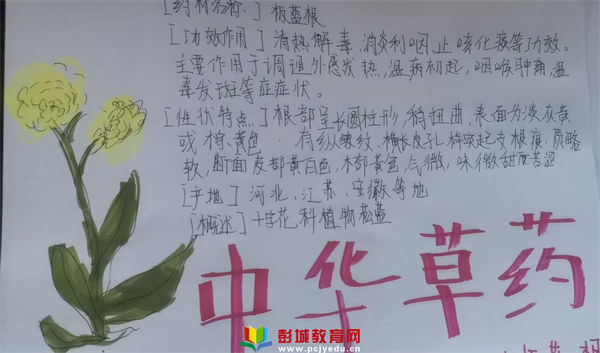 [药材名称] 板蓝根
[功效作用] 清热解毒、消炎利咽、止咳化痰等功效。
主要作用于调通外感发热,温病初起,咽喉肿痛,温
毒发斑等症症状。
[性状特点] 根部呈长圆柱形,稍扭曲,表面为淡灰黄
或棕黄色。有纵皱纹,横长皮孔样突起支根痕,质略
软,断面皮部黄白色,木部黄色,气微,味微甜后苦涩
[产地] 河北,江苏,安徽等地
[概述] 十字花科植物菘蓝
中华草药
彭城教育网
www.pcjyedu.cn